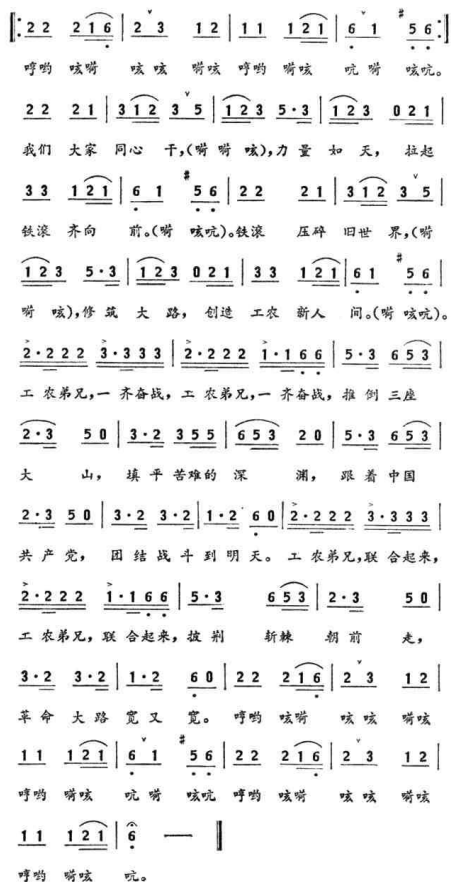 ‖: 2 2 2 1 6 | 2 3 1 2 | 1 1 1 2 1 | 6 1 #5 6 :‖
哼哟 咳嗬 咳咳 嗬咳 哼哟 嗬咳 吭嗬 咳吭。
2 2 2 1 | 3 1 2 3 5 | 1 2 3 5·3 | 1 2 3 0 2 1 |
我们 大家 同心 干,(嗬 嗬 咳),力 量 如 天, 拉起
3 3 1 2 1 | 6 1 #5 6 | 2 2 2 1 | 3 1 2 3 5 |
铁滚 齐向 前。(嗬 咳吭)。铁滚 压碎 旧世 界,(嗬
1 2 3 5·3 | 1 2 3 0 2 1 | 3 3 1 2 1 | 6 1 #5 6 |
嗬 咳),修 筑 大 路, 创造 工农 新人 间。(嗬 咳吭)。
2·2 2 2 3·3 3 3 | 2·2 2 2 1·1 6 6 | 5·3 6 5 3 |
工 农弟兄,一 齐奋战, 工 农弟兄,一 齐奋战, 推 倒 三座
2·3 5 0 | 3·2 3 5 5 | 6 5 3 2 0 | 5·3 6 5 3 |
大 山, 填 平 苦难的 深 渊, 跟 着 中国
2·3 5 0 | 3·2 3·2 | 1·2 6 0 | 2·2 2 2 3·3 3 3 |
共 产 党, 团 结 战 斗 到 明 天。 工 农弟兄,联 合起来,
2·2 2 2 1·1 6 6 | 5·3 6 5 3 | 2·3 5 0 |
工 农弟兄, 联 合起来, 披 荆 斩棘 朝 前 走,
3·2 3·2 | 1·2 6 0 | 2 2 2 1 6 | 2 3 1 2 |
革 命 大 路 宽 又 宽。 哼哟 咳嗬 咳咳 嗬咳
1 1 1 2 1 | 6 1 #5 6 | 2 2 2 1 6 | 2 3 1 2 |
哼哟 嗬咳 吭嗬 咳吭 哼哟 咳嗬 咳咳 嗬咳
1 1 1 2 1 | 6 — ‖
哼哟 嗬咳 吭。